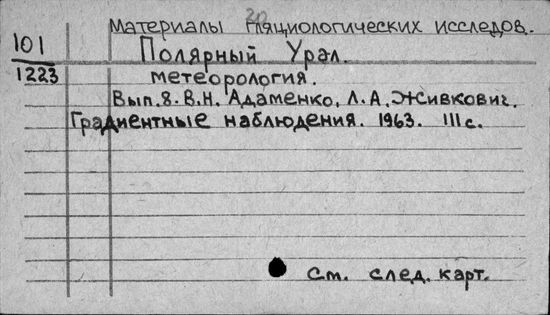 20
Материалы гляциологических исследов.
101
Полярный Урал.
1223
метеорология.
Вып.8. В.Н. Адаменко, Л.А. Живкович.
Градиентные наблюдения. 1963. 111 с.
См. след. карт.